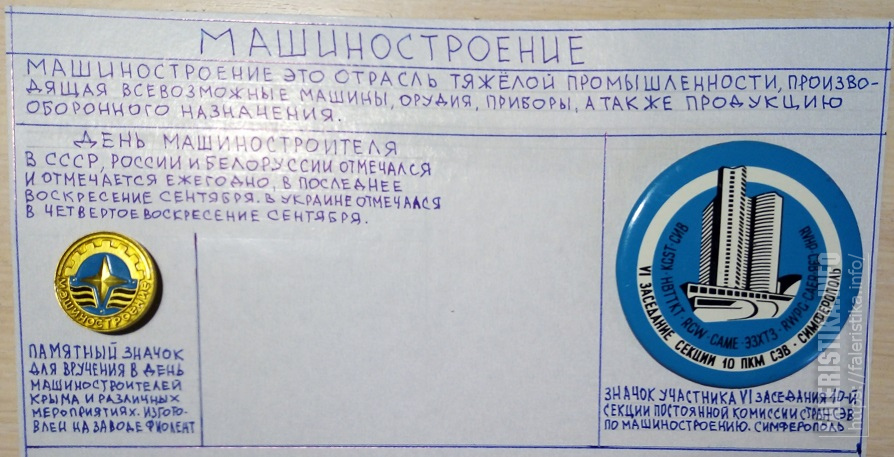 МАШИНОСТРОЕНИЕ
МАШИНОСТРОЕНИЕ ЭТО ОТРАСЛЬ ТЯЖЁЛОЙ ПРОМЫШЛЕННОСТИ, ПРОИЗВО-
ДЯЩАЯ ВСЕВОЗМОЖНЫЕ МАШИНЫ, ОРУДИЯ, ПРИБОРЫ, А ТАКЖЕ ПРОДУКЦИЮ
ОБОРОННОГО НАЗНАЧЕНИЯ.
ДЕНЬ МАШИНОСТРОИТЕЛЯ
В СССР, РОССИИ И БЕЛОРУССИИ ОТМЕЧАЛСЯ
И ОТМЕЧАЕТСЯ ЕЖЕГОДНО, В ПОСЛЕДНЕЕ
ВОСКРЕСЕНИЕ СЕНТЯБРЯ. В УКРАИНЕ ОТМЕЧАЛСЯ
В ЧЕТВЕРТОЕ ВОСКРЕСЕНИЕ СЕНТЯБРЯ.
МАШИНОСТРОИТЕЛЬ
ПАМЯТНЫЙ ЗНАЧОК
ДЛЯ ВРУЧЕНИЯ В ДЕНЬ
МАШИНОСТРОИТЕЛЕЙ
КРЫМА И РАЗЛИЧНЫХ
МЕРОПРИЯТИЯХ. ИЗГОТО-
ВЛЕН НА ЗАВОДЕ ФИОЛЕНТ
VI ЗАСЕДАНИЕ СЕКЦИИ 10 ПКМ СЭВ - СИМФЕРОПОЛЬ
RCW · CAME · ЭЗХТЗ · RWPG · CAER · KGST · СИВ
ЗНАЧОК УЧАСТНИКА VI ЗАСЕДАНИЯ 10-Й
СЕКЦИИ ПОСТОЯННОЙ КОМИССИИ СТРАН СЭВ
ПО МАШИНОСТРОЕНИЮ. СИМФЕРОПОЛЬ
FALERISTIKA.INFO
https://faleristika.info/